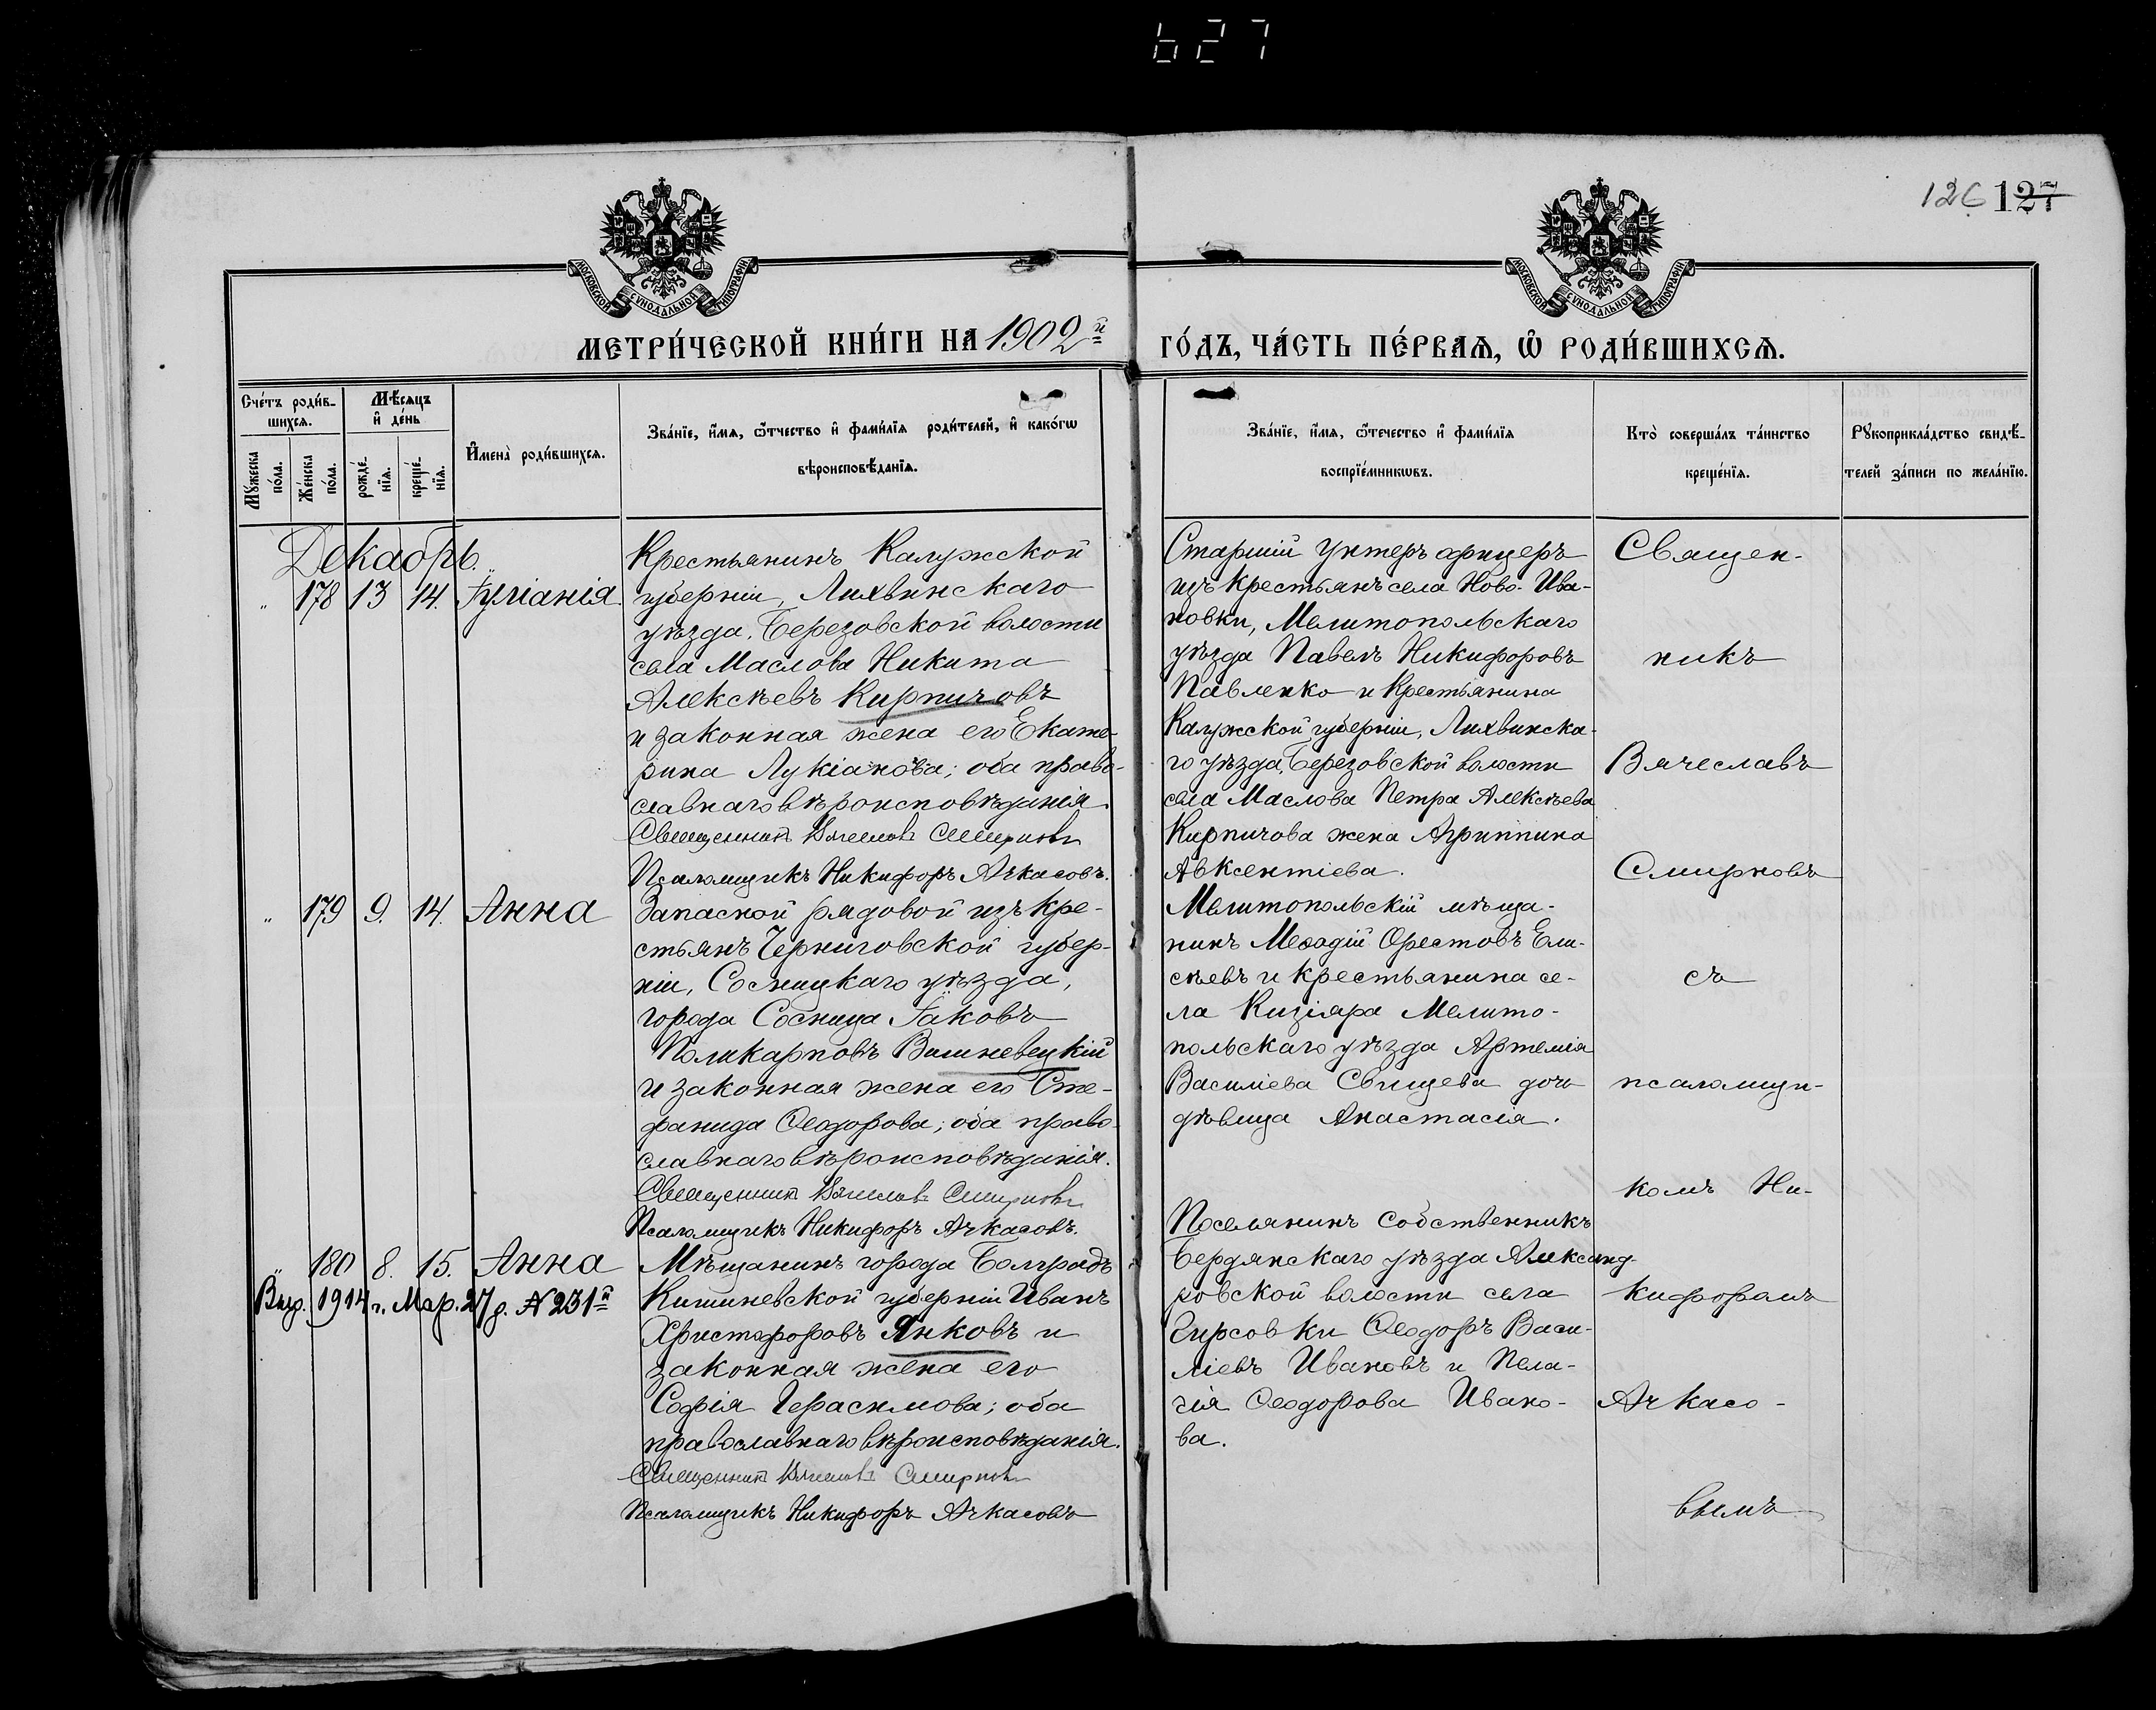 627
126 127
МОСКОВСКОЙ СѴНОДАЛЬНОЙ ТИПОГРАФІИ
МОСКОВСКОЙ СѴНОДАЛЬНОЙ ТИПОГРАФІИ
МЕТРИ́ЧЕСКОЙ КНИ́ГИ НА 1902й
ГО́ДЪ, ЧА́СТЬ ПЕ́РВАѦ, Ѡ҆ РОДИ́ВШИХСѦ.
Сче́тъ роди́в-
шихсѧ.
Мꙋжеска по́ла.
Же́нска по́ла.
Мѣ́сѧцъ
и҆ де́нь
рожде́-
нїѧ.
креще́-
нїѧ.
И҆мена̀ роди́вшихсѧ.
Зва́нїе, и҆́мѧ, ѻ҆́тчество и҆ фами́лїѧ роди́телей, и҆ како́гѡ
вѣроисповѣ́данїѧ.
Зва́нїе, и҆́мѧ, ѻ҆́течество и҆ фами́лїѧ
воспрїе́мникѡвъ.
Кто̀ соверша́лъ та́инство
креще́нїѧ.
Рꙋкоприкла́дство свидѣ́-
телей за́писи по жела́нїю.
Декабрь.
" 178 13 14. Іуліанія.
Крестьянинъ Калужской
губерніи, Лихвинскаго
уѣзда, Березовской волости
села Маслова Никита
Алексѣевъ Кирпичовъ
и законная жена его Екате-
рина Лукіанова; оба право-
славнаго вѣроисповѣданія.
Священникъ Вячеславъ Смирновъ
Псаломщикъ Никифоръ Ачкасовъ.
Старшій унтеръ офицеръ
изъ крестьянъ села Ново-Ива-
новки, Мелитопольскаго
уѣзда Павелъ Никифоровъ
Павленко и крестьянина
Калужской губерніи, Лихвинска-
го уѣзда, Березовской волости
села Маслова Петра Алексѣева
Кирпичова жена Агриппина
Авксентіева.
" 179 9. 14. Анна
Запасной рядовой изъ кре-
стьянъ Черниговской губер-
ніи, Сосницкаго уѣзда,
города Сосница Іаковъ
Поликарповъ Вишневецкій
и законная жена его Сте-
фанида Ѳеодорова; оба право-
славнаго вѣроисповѣданія.
Священникъ Вячеславъ Смирновъ
Псаломщикъ Никифоръ Ачкасовъ.
Мелитопольскій мѣща-
нинъ Меѳодій Орестовъ Ели-
сѣевъ и крестьянина се-
ла Кизіяра Мелито-
польскаго уѣзда Артемія
Василіева Свищева дочь
дѣвица Анастасія.
" 180 8. 15. Анна
Выд. 1914 г. Мар. 27 д. № 231й
Мѣщанинъ города Болградъ
Кишиневской губерніи Иванъ
Христофоровъ Янковъ и
законная жена его
Софія Герасимова; оба
православнаго вѣроисповѣданія.
Священникъ Вячеславъ Смирновъ
Псаломщикъ Никифоръ Ачкасовъ
Поселянинъ собственникъ
Бердянскаго уѣзда Александ-
ровской волости села
Гирсовки Ѳеодоръ Васи-
ліевъ Ивановъ и Пела-
гія Ѳеодорова Ивано-
ва.
Священ-
никъ
Вячеславъ
Смирновъ
съ
псаломщи-
комъ Ни-
кифоромъ
Ачкасо-
вымъ